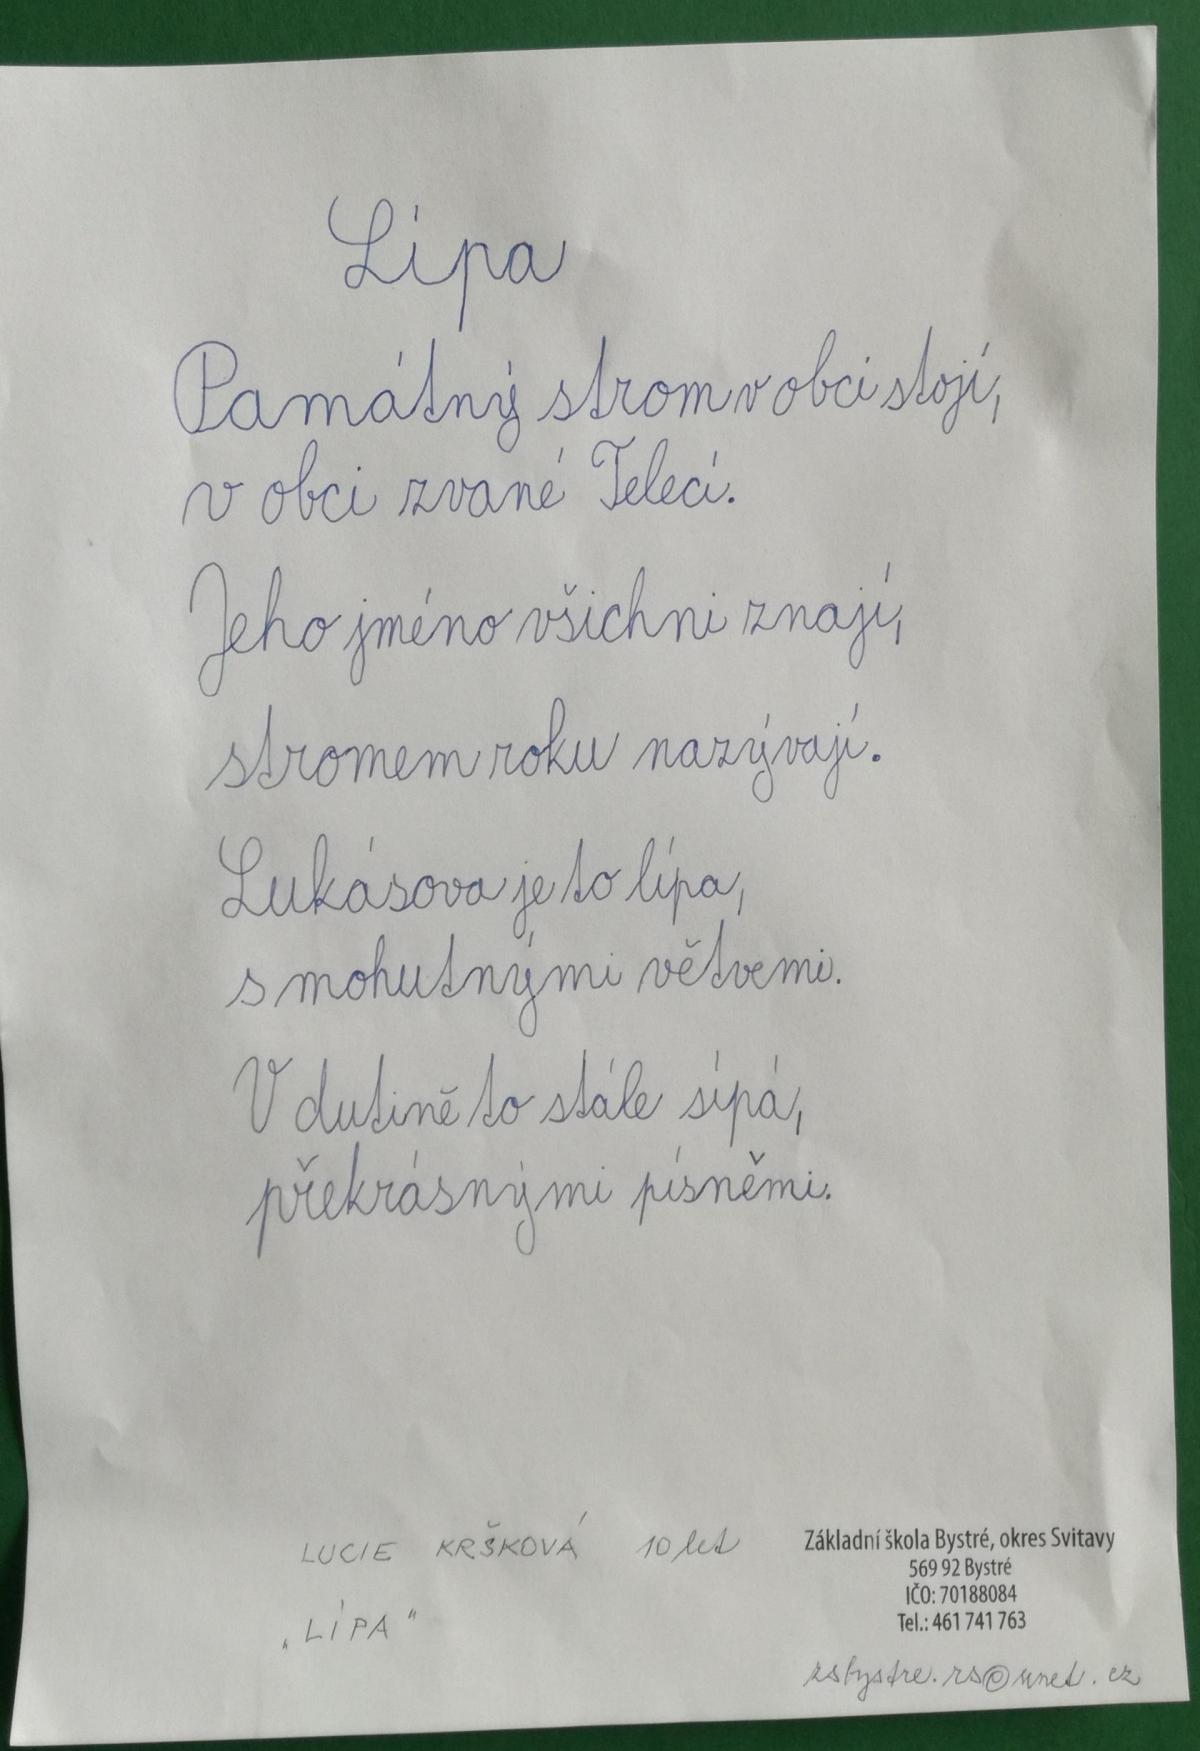 Lípa
Památný strom v obci stojí,
v obci zvané Telecí.
Jeho jméno všichni znají,
stromem roku nazývají.
Lukásova je to lípa,
s mohutnými větvemi.
V dutině to stále sípá,
překrásnými písněmi.
LUCIE KRŠKOVÁ 10 let
„LÍPA"
Základní škola Bystré, okres Svitavy
569 92 Bystré
IČO: 70188084
Tel.: 461 741 763
zsbystre.rs@unet.cz